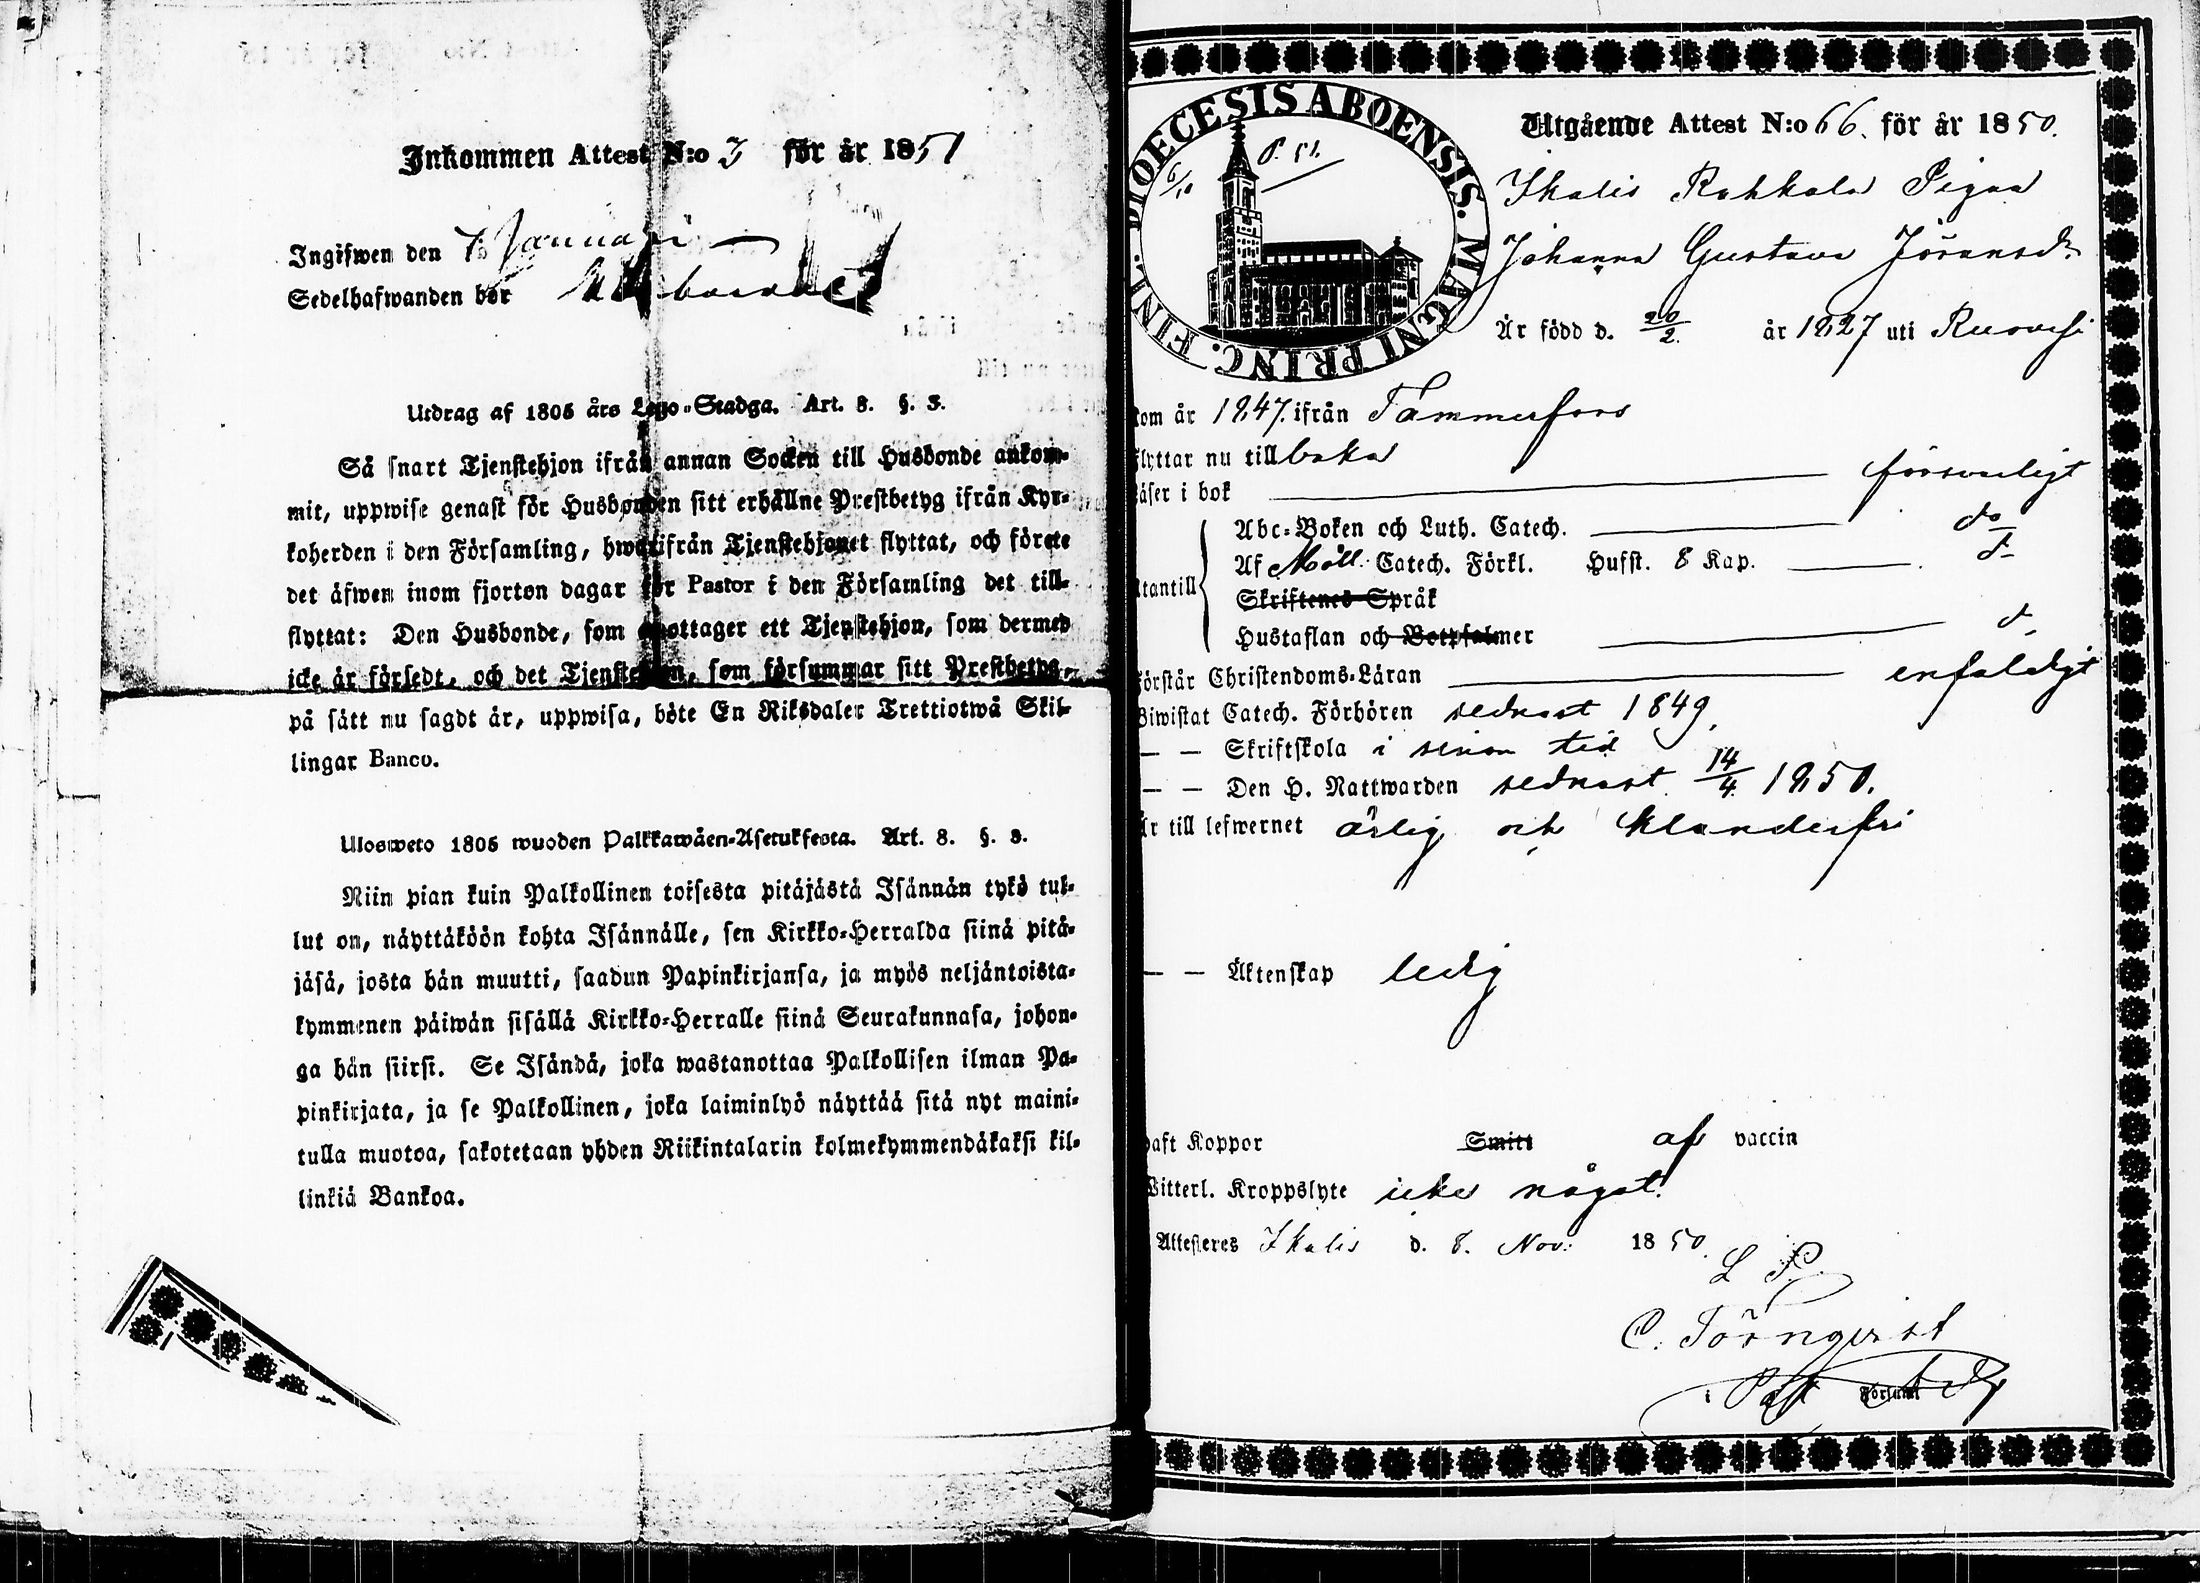 Inkommen Attest N:o 3 för år 1851
Ingifwen den 7 Januari
Sedelhafwanden bor
Utdrag af 1805 års Lego-Stadga. Art. 8. §. 3.
Så snart Tjenstehjon ifrån annan Socken till Husbonde ankom-
mit, uppwise genast för Husbonden sitt erhållne Prestbetyg ifrån Kyr-
koherden i den Församling, hwarifrån Tjenstehjonet flyttat, och förete
det äfwen inom fjorton dagar för Pastor i den Församling det till-
flyttat: Den Husbonde, som emottager ett Tjenstehjon, som dermed
icke är försedt, och det Tjenstehjon, som försummar sitt Prestbetyg,
på sätt nu sagdt är, uppwisa, böte En Riksdaler Trettiotwå Skil-
lingar Banco.
Ulosweto 1805 wuoden Palkkawäen-Asetuksesta. Art. 8. §. 3.
Niin pian kuin Palkollinen toisesta pitäjästä Isännän tykö tul-
lut on, näyttäköön kohta Isännälle, sen Kirkko-Herralda siinä pitä-
jäsä, josta hän muutti, saadun Papinkirjansa, ja myös neljäntoista-
kymmenen päiwän sisällä Kirkko-Herralle siinä Seurakunnasa, johon-
ga hän siirsi. Se Isändä, joka wastanottaa Palkollisen ilman Pa-
pinkirjata, ja se Palkollinen, joka laiminlyö näyttää sitä nyt maini-
tulla muotoa, sakotetaan yhden Riikintalarin kolmekymmendäkaksi kil-
linkiä Bankoa.
DIOECESIS ABOENSIS. MAGNI PRINC. FINL.
P. 51.
Utgående Attest N:o 66. för år 1850.
Ikalis Rahkala Pigan
Johanna Gustava Jöransdr
Är född d. 20/2. år 1827 uti Ruovesi
kom år 1847. ifrån Tammerfors
flyttar nu tillbaka
läser i bok försvarligt
Abc-Boken och Luth. Catech. do
Utantill Af Möll. Catech. Förkl. Husst. 8 Kap. d-
Skriftenes Språk
Hustaflan och Botpsalmer d-
förstår Christendoms-Läran enfaldigt
Biwistat Catech. Förhören sednast 1849.
— — Skriftskola i sinom tid
— — Den H. Nattwarden sednast 14/4. 1850.
Är till lefwernet ärlig och klanderfri
— — Äktenskap ledig
haft Koppor Smitt af vaccin
Witterl. Kroppslyte icke något.
Attesteres Ikalis d. 8. Nov: 1850.
L S.
C. Törnqvist
i Församl